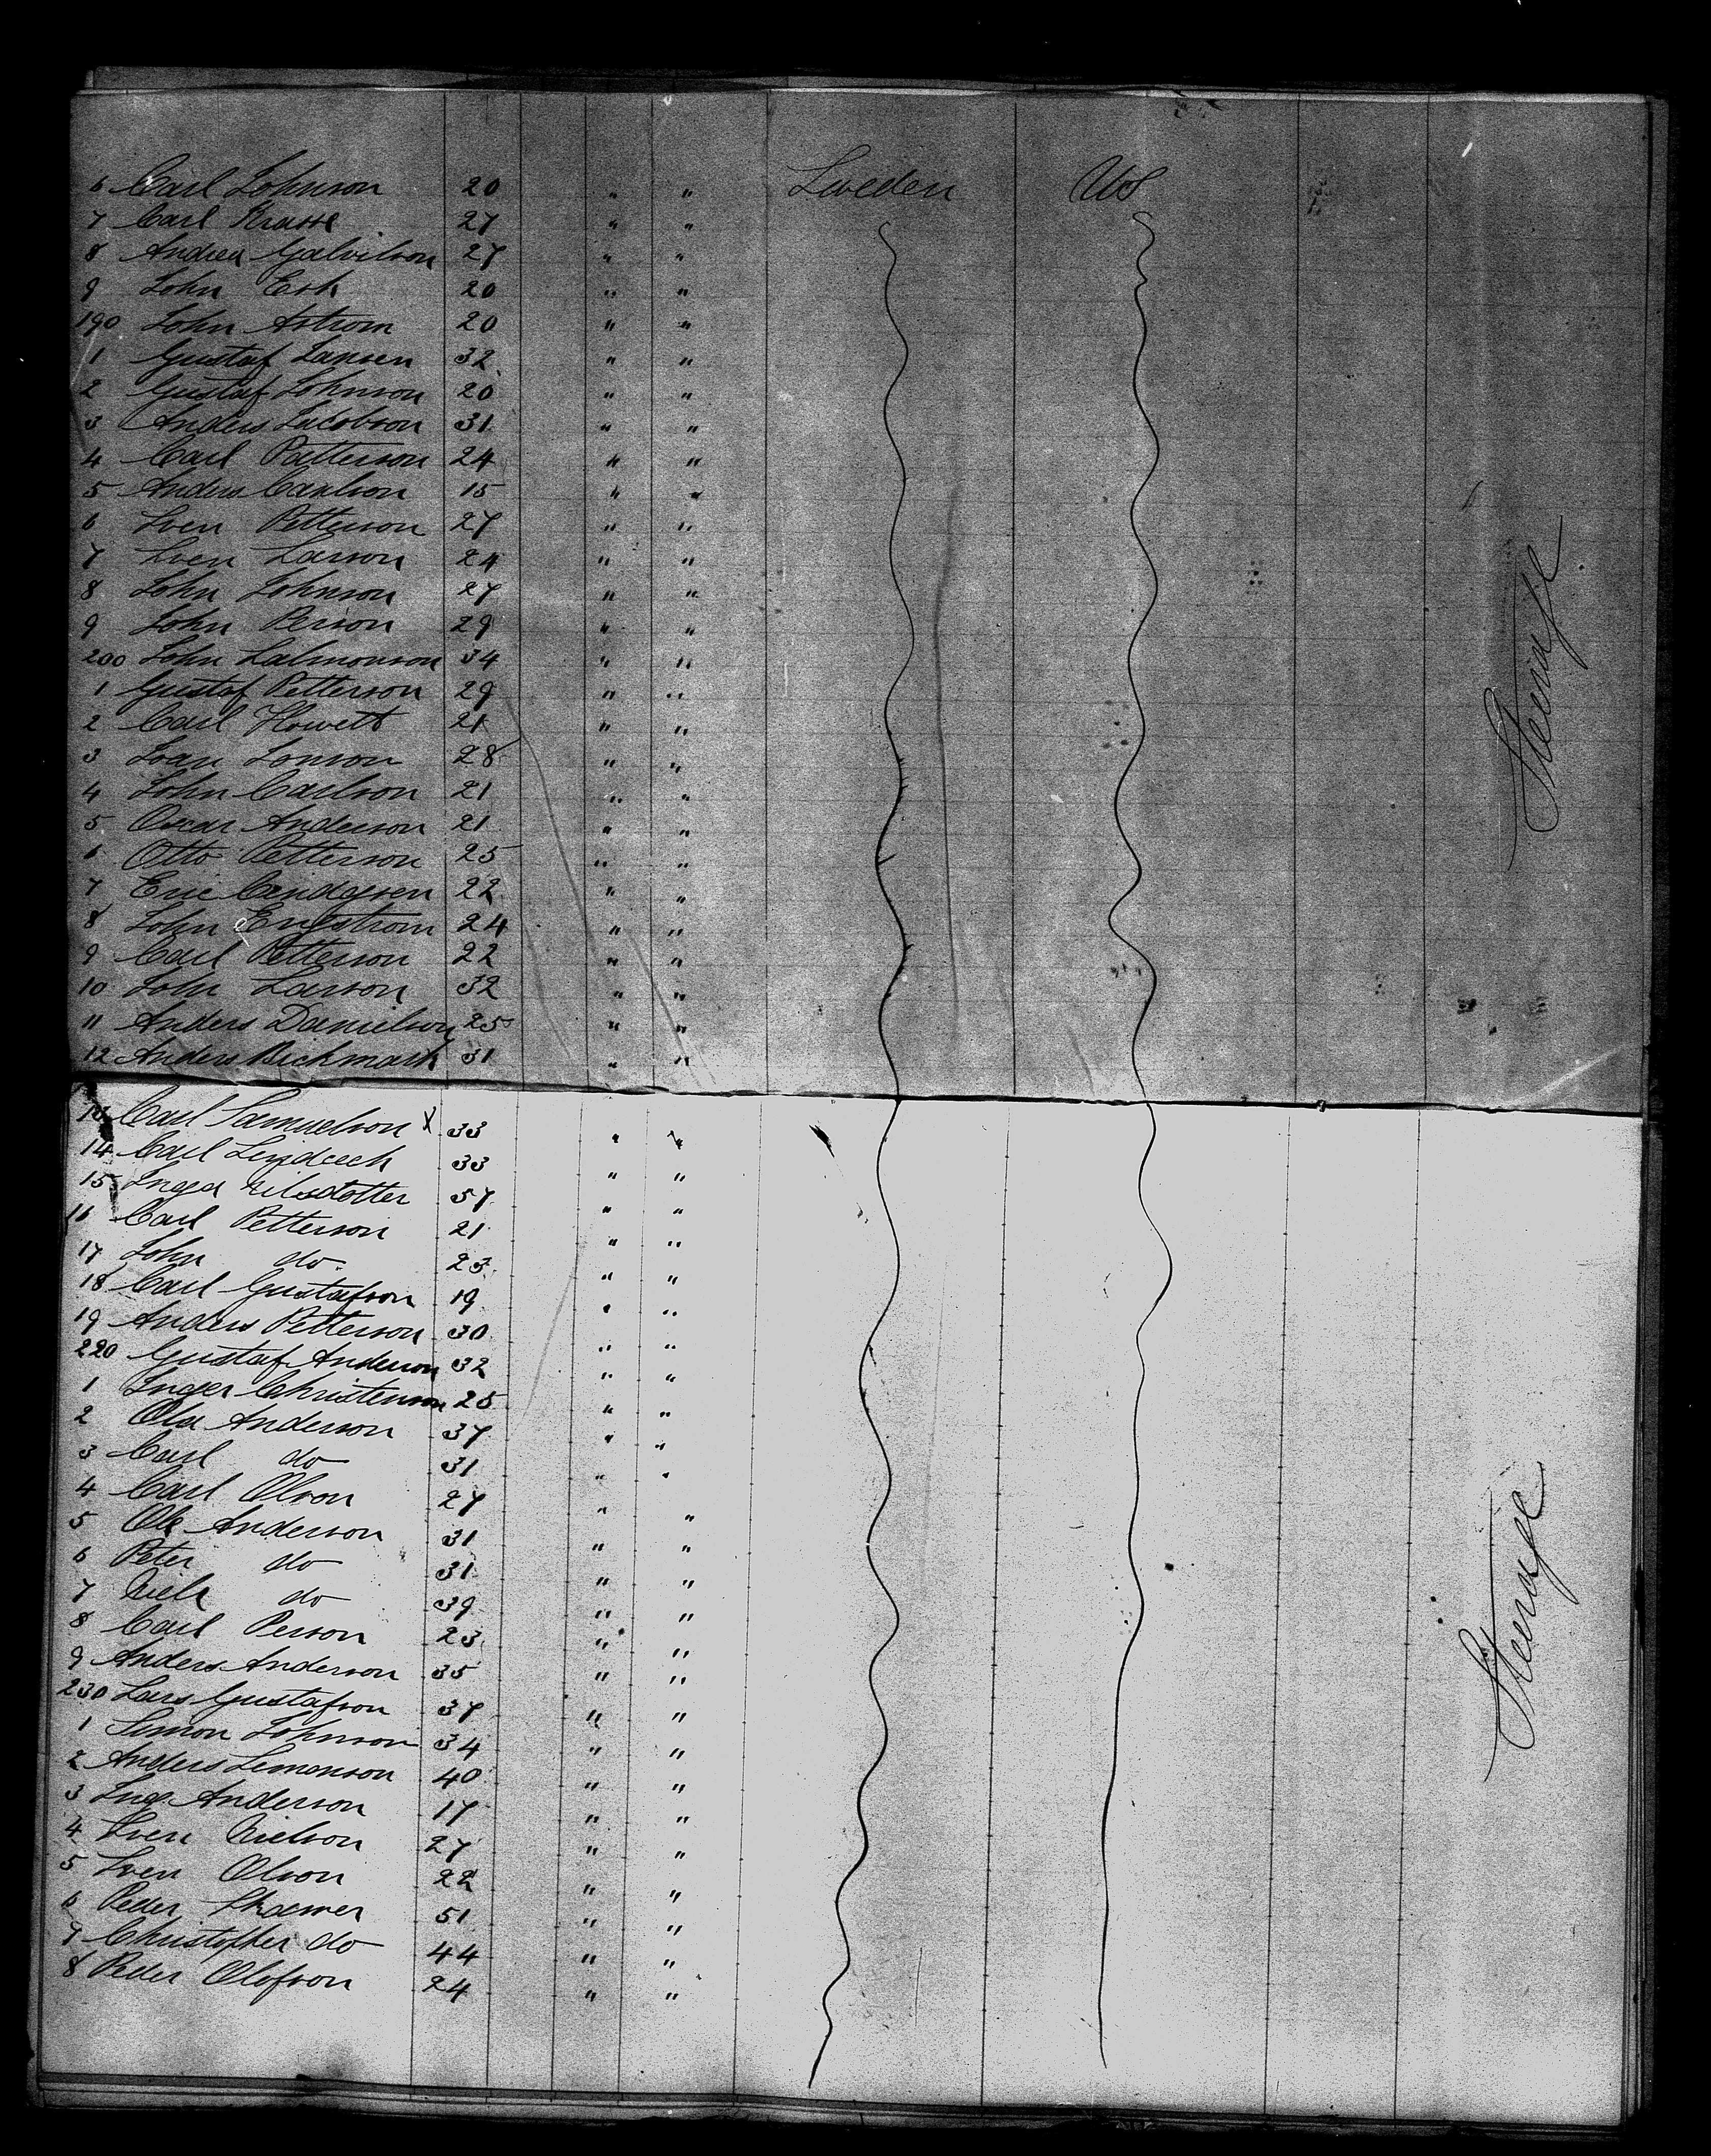 6 Carl Johnson 20 " " Sweden US
7 Carl Krasse 27 " "
8 Andrea Galvilson 27 " "
9 John Esk 20 " "
190 John Astrom 20 " "
1 Gustaf Lansen 32 " "
2 Gustaf Johnson 20 " "
3 Anders Jacobson 31 " "
4 Carl Patterson 24 " "
5 Anders Carlson 15 " "
6 Sven Petterson 27 " "
7 Sven Larson 24 " "
8 John Johnson 27 " "
9 John Person 29 " "
200 John Salmonson 34 " "
1 Gustaf Petterson 29 " "
2 Carl Howett 21 " "
3 Joan Jonson 28 " "
4 John Carlson 21 " "
5 Oscar Anderson 21 " "
6 Otto Petterson 25 " "
7 Eric 22 " "
8 John Engstrom 24 " "
9 Carl Petterson 22 " "
10 John Larson 32 " "
11 Anders Danielson 25 " "
12 Anders Bickmark 31 " "
Steerage
13 Carl Samuelson X 33 " "
14 Carl 33 " "
15 Inga Nilsdotter 57 " "
16 Carl Petterson 21 " "
17 John do 23 " "
18 Carl Gustafson 19 " "
19 Anders Petterson 30 " "
220 Gustaf Anderson 32 " "
1 Inger Christenson 25 " "
2 Ola Anderson 37 " "
3 Carl do 31 " "
4 Carl Olson 27 " "
5 Ole Anderson 31 " "
6 Peter do 31 " "
7 Niels do 39 " "
8 Carl Person 23 " "
9 Anders Anderson 35 " "
230 Lars Gustafson 37 " "
1 Simon Johnson 34 " "
2 Anders Simonson 40 " "
3 Inga Anderson 17 " "
4 Sven Nielson 27 " "
5 Sven Olson 22 " "
6 Peder 51 " "
7 Christopher do 44 " "
8 Peder Olofson 24 " "
Steerage